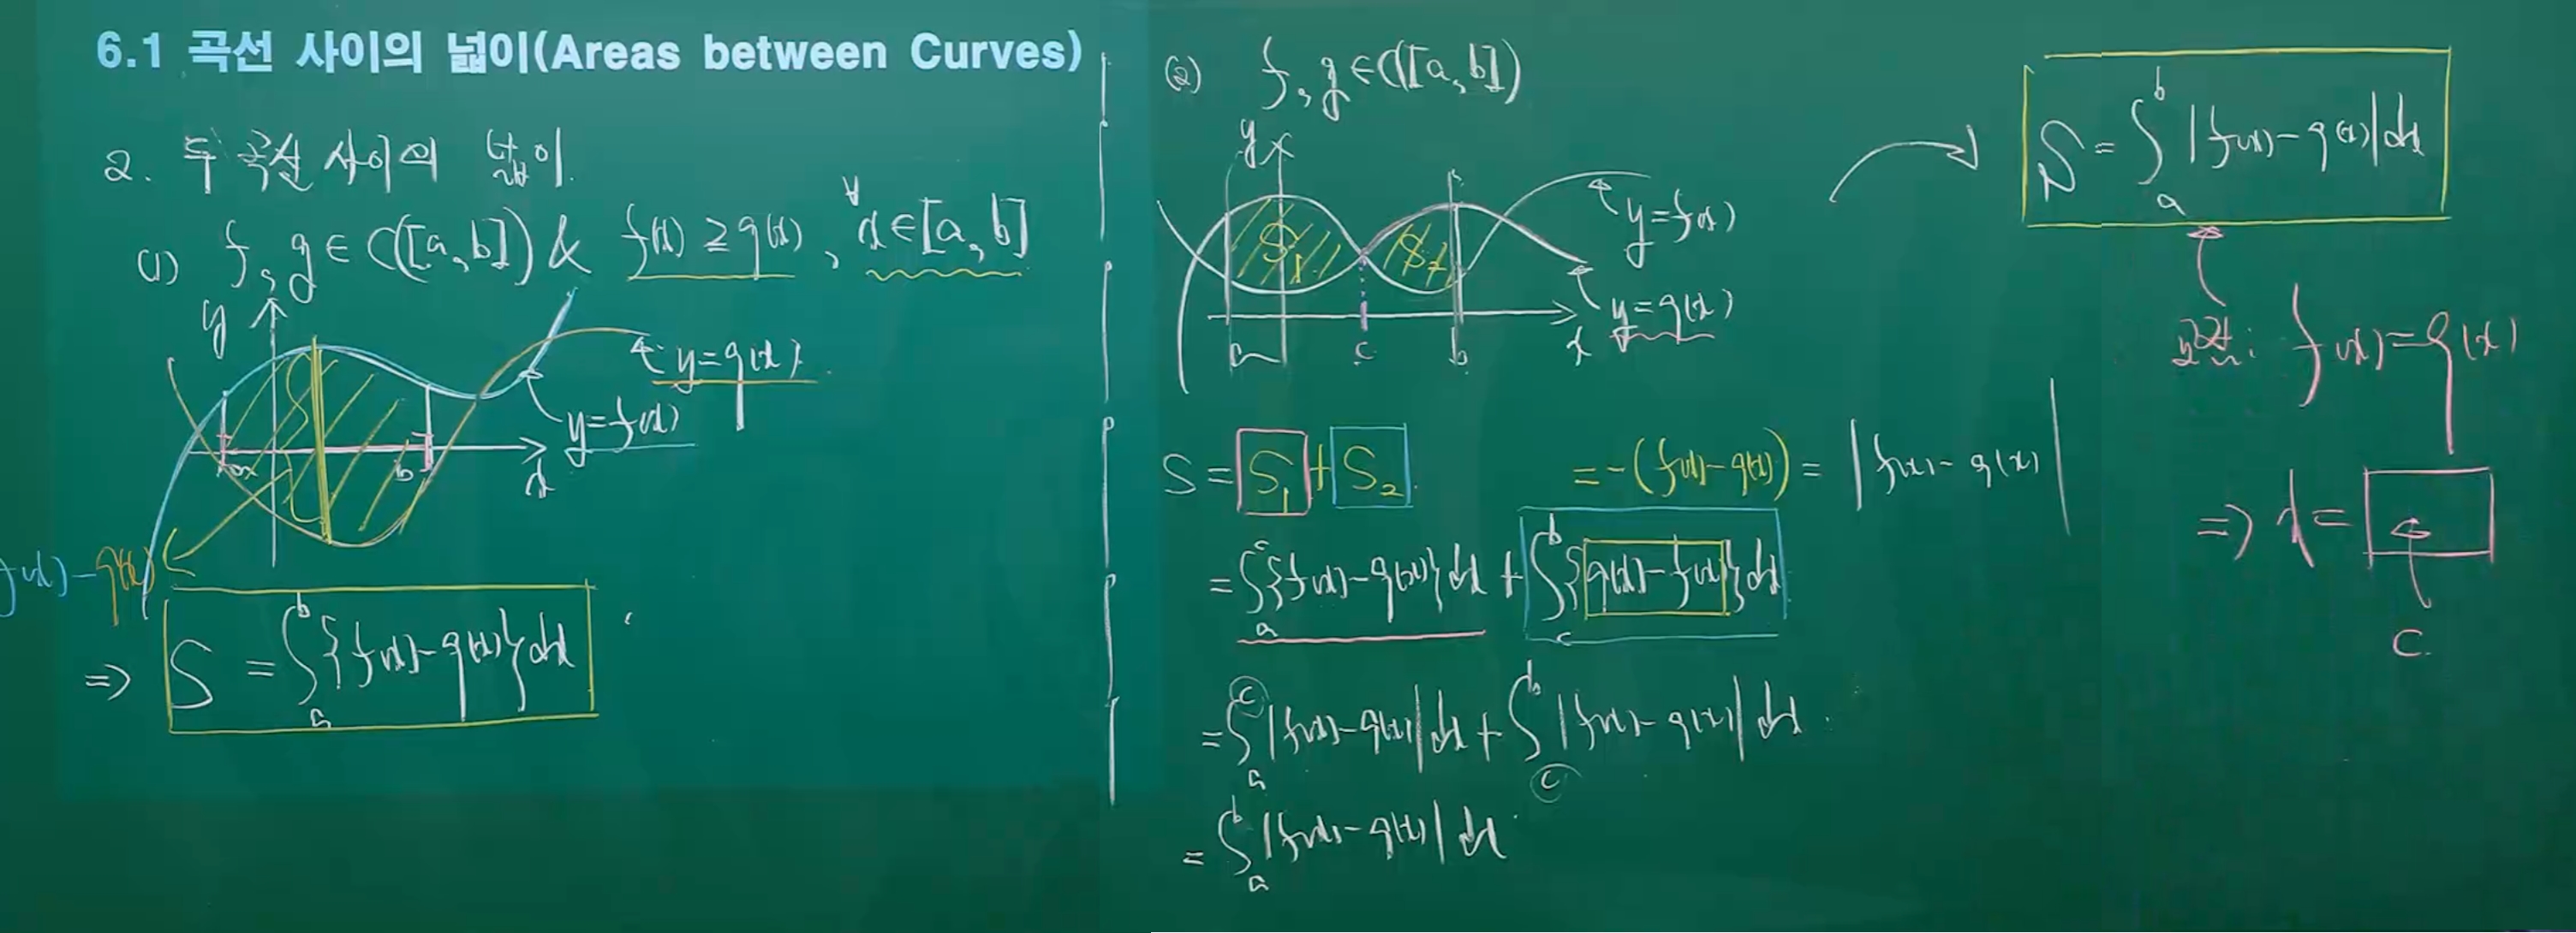 6.1 곡선 사이의 넓이(Areas between Curves)
2. 두 곡선 사이의 넓이.
(1) f, g ∈ C([a, b]) & f(x) ≥ g(x), ∀x ∈ [a, b]
y
y = g(x)
y = f(x)
a
b
x
f(x) - g(x)
⇒ S = ∫_a^b {f(x) - g(x)} dx
(2) f, g ∈ C([a, b])
y
S₁
S₂
y = f(x)
y = g(x)
a
c
b
x
S = S₁ + S₂
= -(f(x) - g(x)) = |f(x) - g(x)|
= ∫_a^c {f(x) - g(x)} dx + ∫_c^b {g(x) - f(x)} dx
= ∫_a^c |f(x) - g(x)| dx + ∫_c^b |f(x) - g(x)| dx.
= ∫_a^b |f(x) - g(x)| dx.
S = ∫_a^b |f(x) - g(x)| dx
교점: f(x) = g(x)
⇒ x = □
c.